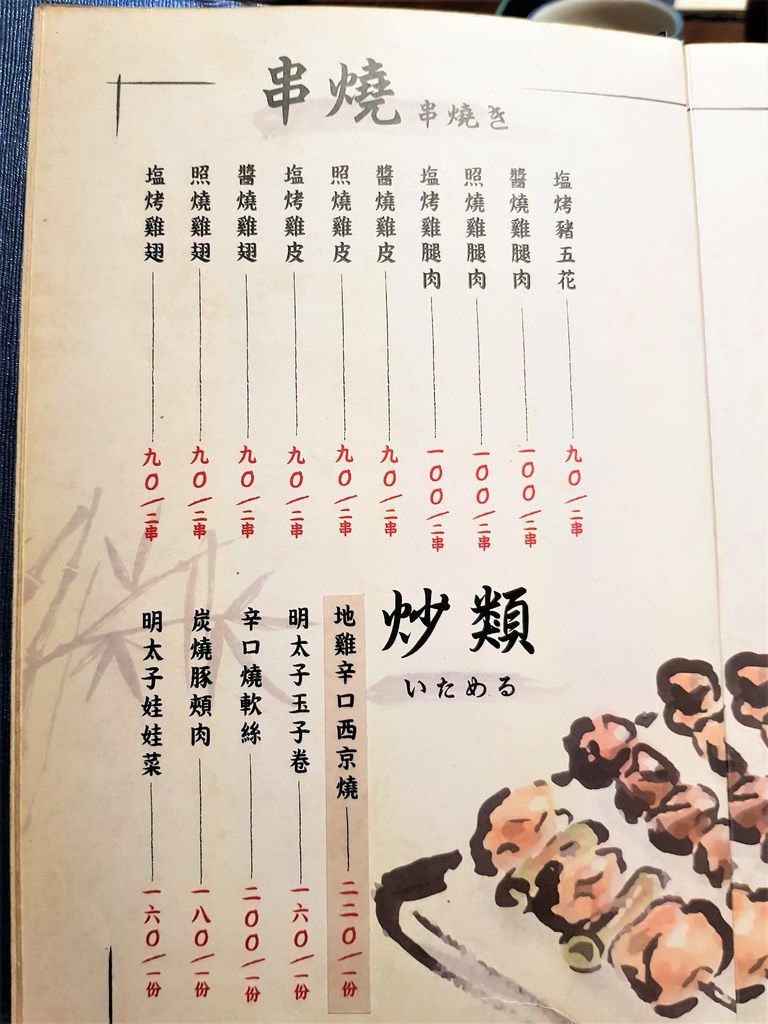 串燒 串燒き
塩烤豬五花 九0/二串
醬燒雞腿肉 一00/二串
照燒雞腿肉 一00/二串
塩烤雞腿肉 一00/二串
醬燒雞皮 九0/二串
照燒雞皮 九0/二串
塩烤雞皮 九0/二串
醬燒雞翅 九0/二串
照燒雞翅 九0/二串
塩烤雞翅 九0/二串
炒類
いためる
地雞辛口西京燒 二二0/一份
明太子玉子卷 一六0/一份
辛口燒軟絲 二00/一份
炭燒豚頰肉 一八0/一份
明太子娃娃菜 一六0/一份